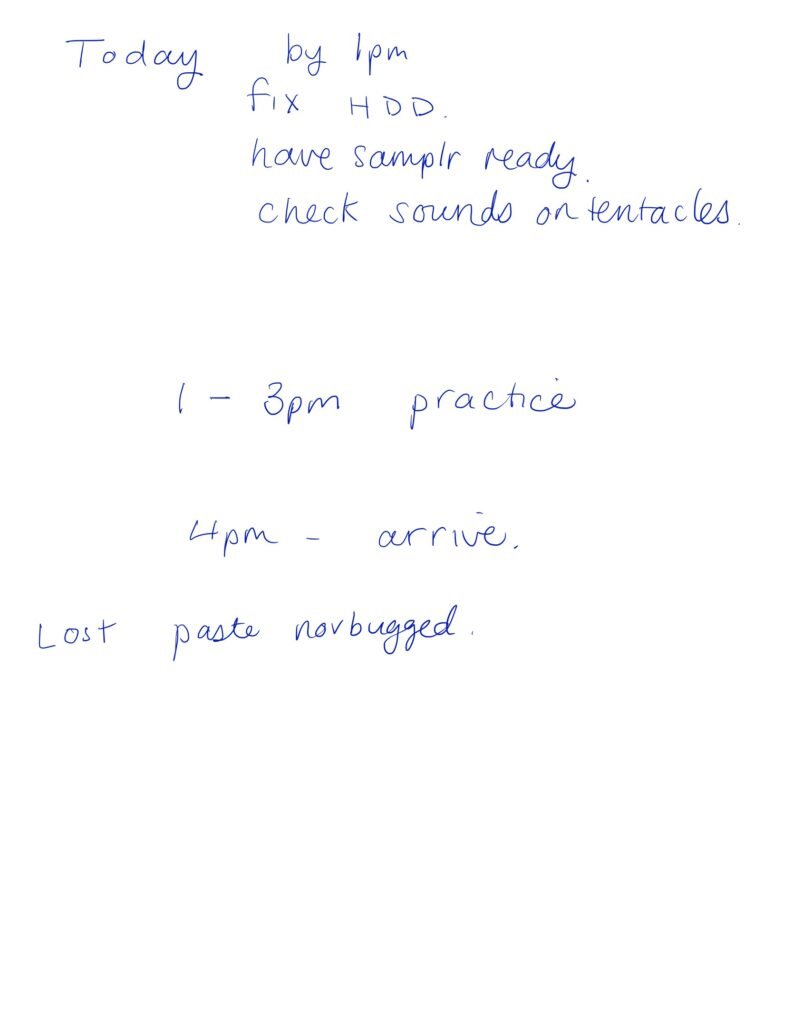 Today by 1pm
fix HDD.
have samplr ready.
check sounds on tentacles.
1 - 3pm practice
4pm - arrive.
Lost paste novbugged.